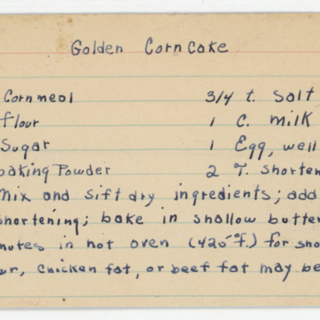 Golden Corn Cake
Cornmeal 3/4 t. Salt
flour 1 C. milk
Sugar 1 Egg, well
baking Powder 2 T. shorten
Mix and sift dry ingredients; add
shortening; bake in shallow butter
nutes in hot oven (425°f.) for sho
ur, Chicken fat, or beef fat may be